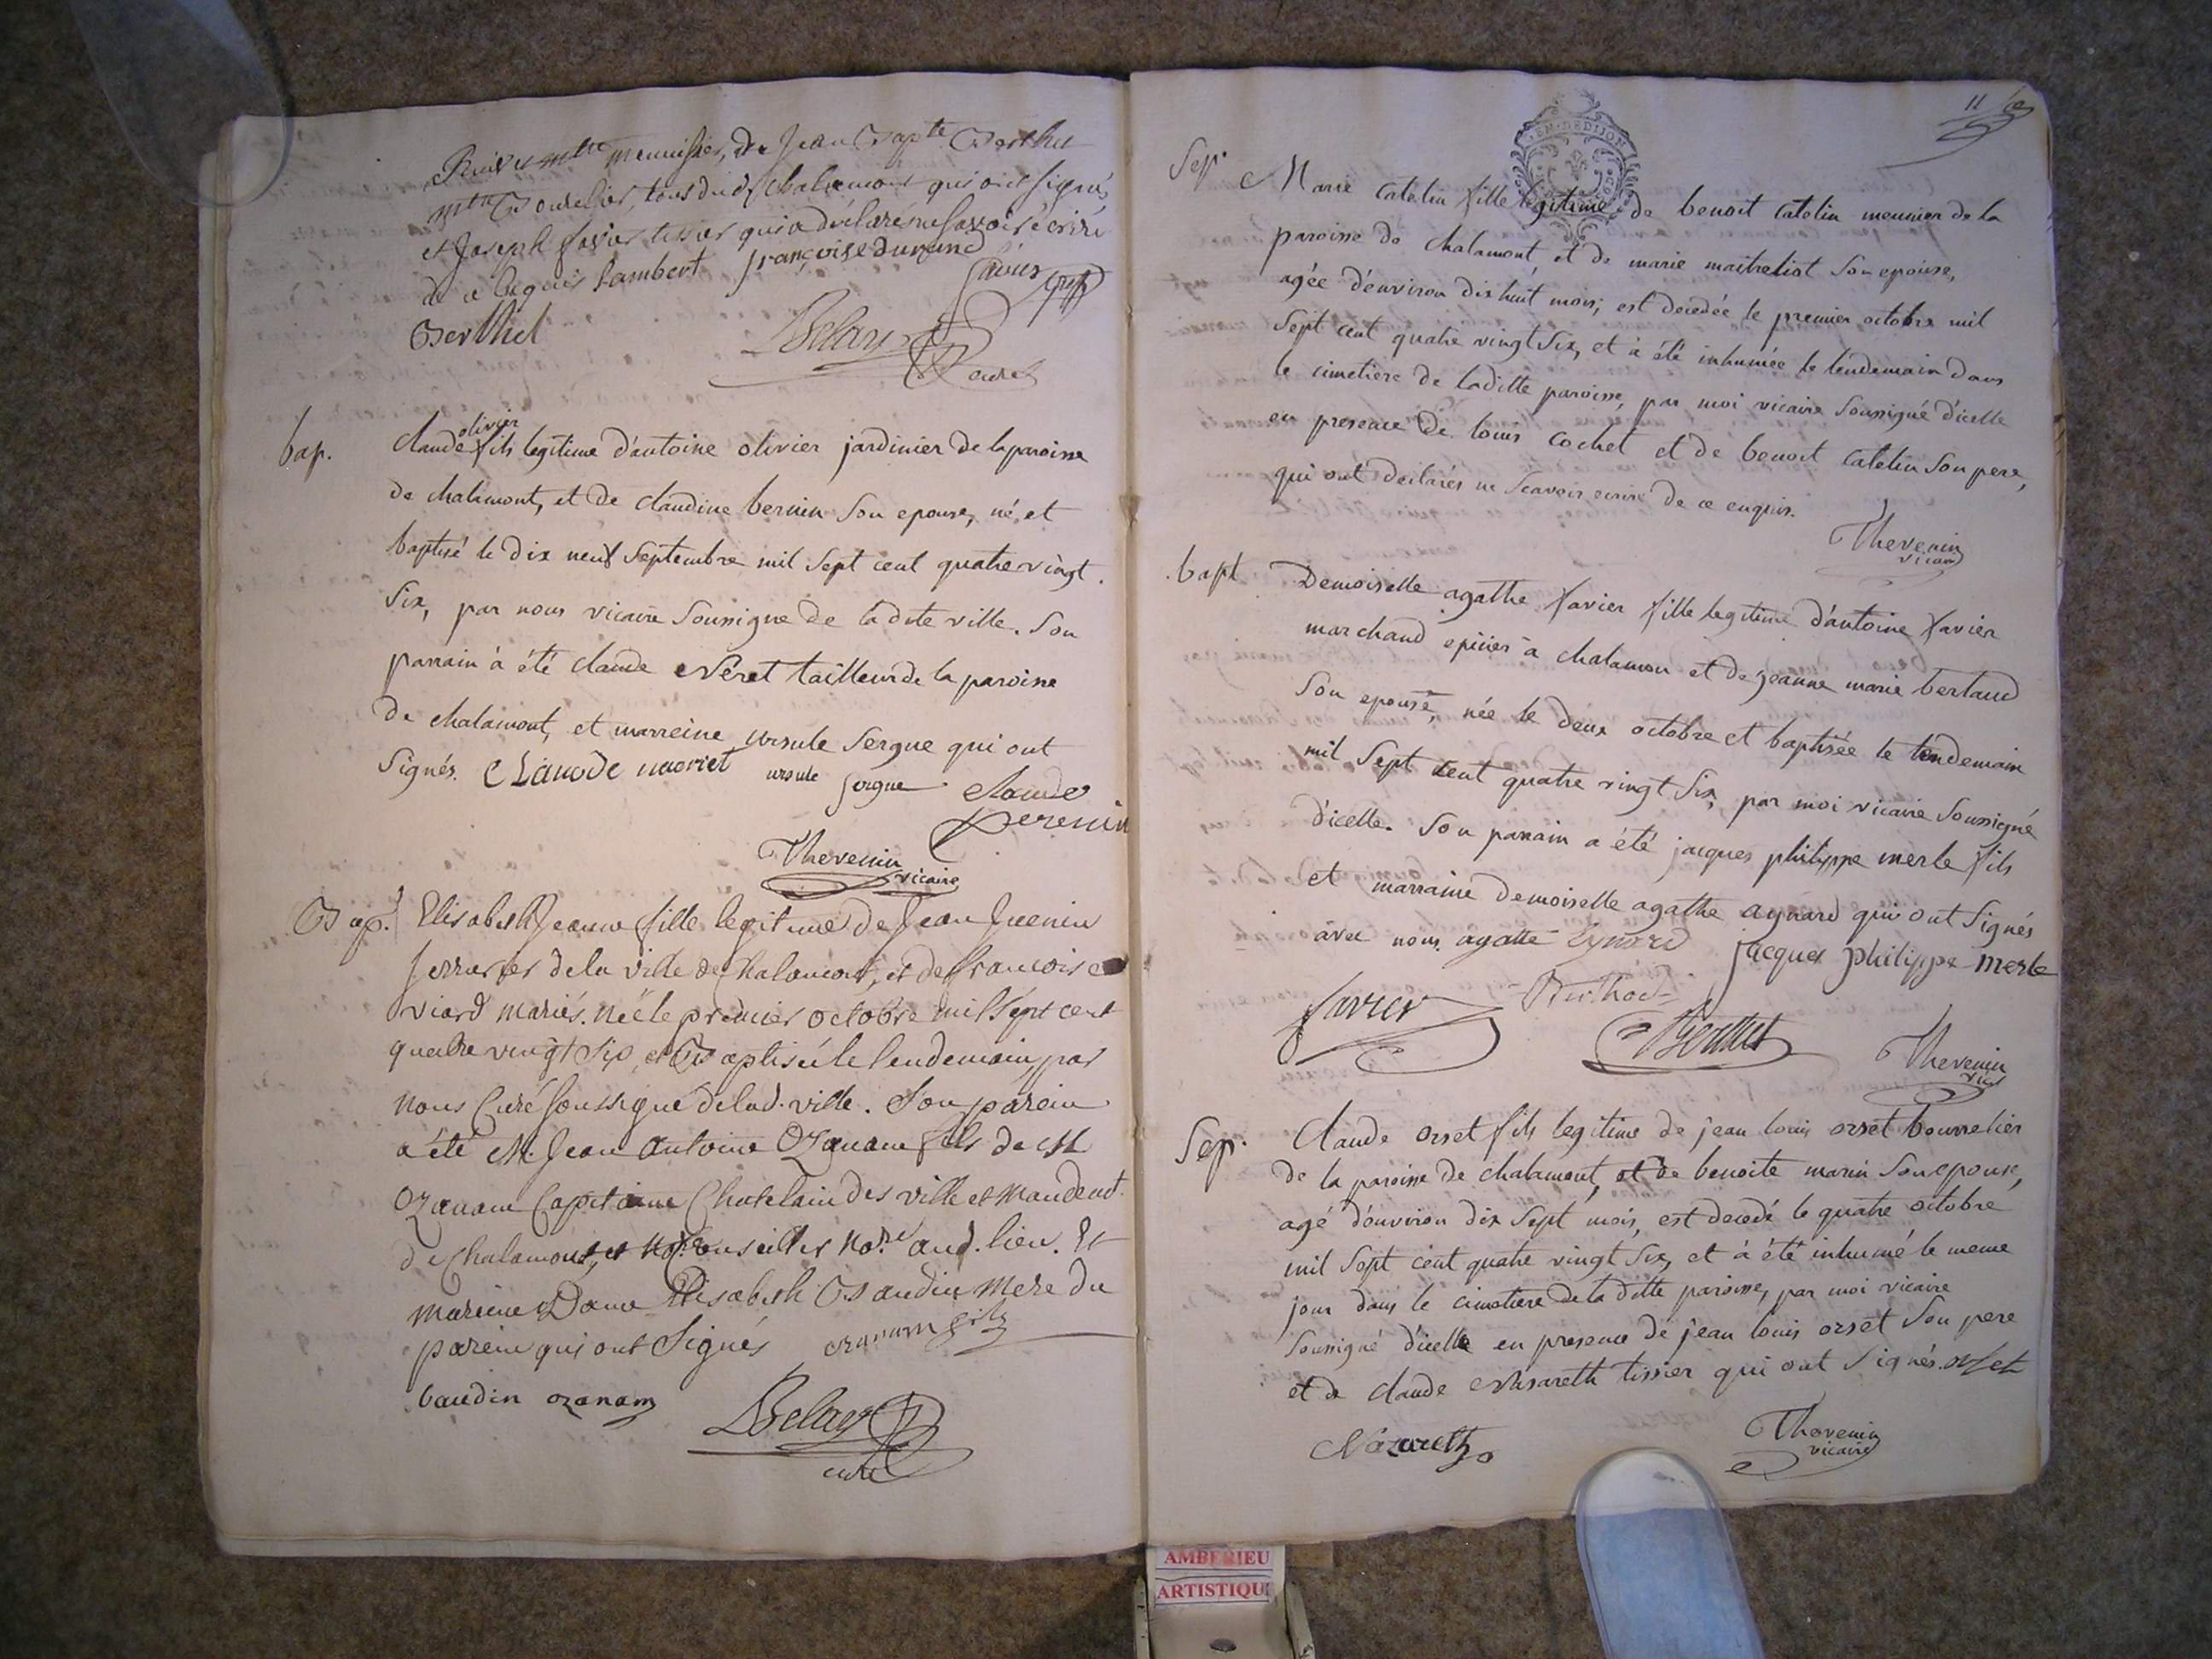 mtre menuisier, de Jean Bapte Berthet
mtre Bourelier, tous dud. chalamont qui ont signés,
et Joseph favier tissier qui a déclaré ne savoir écrire
de ce enquis Lambert françoise durand
favier
Berthet
Belay
curé
bap.
olivier
claude fils legitime d'antoine olivier jardinier de la paroisse
de chalamont, et de claudine bernin son epouse, né, et
baptisé le dix neuf septembre mil sept cent quatre vingt
six, par nous vicaire soussigné de ladite ville. Son
parrain à été claude Néret tailleur de la paroisse
de chalamont, et marreine ursule sergue qui ont
signés. ursule sergue claude
Thevenin
vicaire
Bapt. Elisabeth Jeanne fille legitime de Jean Juenin
serrurier de la ville de Chalamont, et de francoise
viard mariés. née le premier octobre mil sept cent
quatre vingt six, et Baptisée le lendemain, par
nous Curé soussigné de lad. ville. Son parein
a été M. Jean Antoine Ozanam fils de M
Ozanam Capitaine Chatelain des ville et mandemt.
de Chalamont, et Conseiller Nore. aud. lieu. Et
mareine Dame Elisabeth Baudin mere du
parein qui ont signés ozanam fils
baudin ozanam
Belay
curé
11
GEN. DE DIJON
Sep. Marie Catelin fille legitime de benoit Catelin meunier de la
paroisse de chalamont et de marie maitreliat son epouse,
agée d'environ dix huit mois, est decedée le premier octobre mil
sept cent quatre vingt six, et à été inhumée le lendemain dans
le cimetiere de laditte paroisse, par moi vicaire soussigné d'icelle
en presence de louis cochet et de benoit Catelin son pere,
qui ont declarés ne scavoir ecrire de ce enquis.
Thevenin
vicaire
bapt Demoiselle agathe favier fille legitime d'antoine favier
marchand epicier à chalamon et de jeanne marie bertaud
son epouse, née le deux octobre et baptisée le lendemain
mil sept cent quatre vingt six, par moi vicaire soussigné
d'icelle. Son parrain a été jacques philippe merle fils
et marraine demoiselle agathe aynard qui ont signés
avec nous. agatte Eynard jacques philippe merle
favier Berthet
Thevenin
vic
Sep. Claude orset fils legitime de jean louis orset bourrelier
de la paroisse de chalamont, et de benoite marin son epouse,
agé d'environ dix sept mois, est decedé le quatre octobre
mil sept cent quatre vingt six, et à été inhumé le meme
jour dans le cimetiere de la ditte paroisse, par moi vicaire
soussigné d'icelle en presence de jean louis orset son pere
et de claude Nasareth tissier qui ont signés. orset
Nazareth
Thevenin
vicaire
AMBERIEU
ARTISTIQU